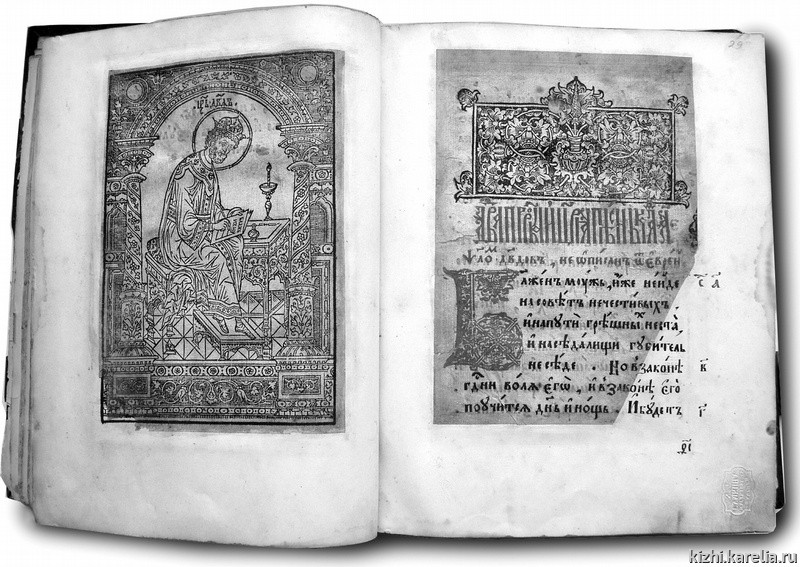 цр҃ь дв҃дъ
29
ѱал҇о дв҃довъ, не ѡписанъ ѿ еврей
Блаженъ мѹжъ, иже не иде
на совѣтъ нечестивыхъ
и на пути грѣшны не ста
и на сѣдалищи губитель
не сѣде. Но в законѣ
гд҇ни волѧ его, и в законѣ его
поучитсѧ дн҃ь и нощь. И будетъ
kizhi.karelia.ru